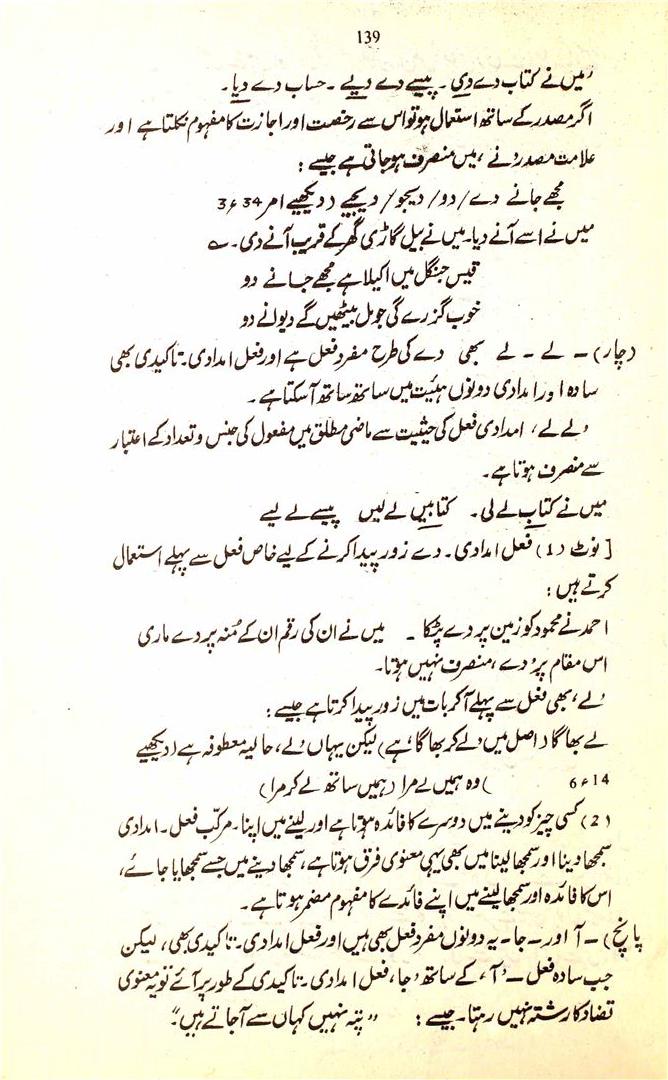 139
'میں نے کتاب دے دی ۔ پیسے دے دیے ۔ حساب دے دیا۔
اگر مصدر کے ساتھ استعمال ہو تو اس سے رخصت اور اجازت کا مفہوم نکلتا ہے اور
علامت مصدر 'نے' میں منصرف ہو جاتی ہے جیسے :
مجھے جانے دے / دو / دیجو / دیجیے (دیکھیے امر 34ء3
میں نے اسے آنے دیا۔ میں نے بیل گاڑی گھر کے قریب آنے دی۔ ؎
قیس جنگل میں اکیلا ہے مجھے جانے دو
خوب گزرے گی جو مل بیٹھیں گے دیوانے دو
(چار) ۔ لے ۔ لے بھی دے کی طرح مفرد فعل ہے اور فعل امدادی۔ تاکیدی بھی
سادہ اور امدادی دونوں ہیئت میں ساتھ ساتھ آ سکتا ہے۔
'لے لے' امدادی فعل کی حیثیت سے ماضی مطلق میں مفعول کی جنس و تعداد کے اعتبار
سے منصرف ہوتا ہے۔
میں نے کتاب لے لی۔ کتابیں لے لیں پیسے لے لیے
[ نوٹ (1) فعل امدادی۔ دے زور پیدا کرنے کے لیے خاص فعل سے پہلے استعمال
کرتے ہیں :
احمد نے محمود کو زمین پر دے پٹکا ۔ میں نے ان کی رقم ان کے مُنہ پر دے ماری
اس مقام پر 'دے' منصرف نہیں ہوتا۔
'لے' بھی فعل سے پہلے آ کر بات میں زور پیدا کرتا ہے جیسے :
لے بھاگا (دراصل میں 'لے کر بھاگا' ہے) لیکن یہاں 'لے' حالیہ معطوفہ ہے (دیکھیے
14ء6 ) وہ ہمیں لے مرا (ہمیں ساتھ لے کر مرا)
(2) کسی چیز کو دینے میں دوسرے کا فائدہ ہوتا ہے اور لینے میں اپنا۔ مرکب فعل۔ امدادی
سمجھا دینا اور سمجھا لینا میں بھی یہی معنوی فرق ہوتا ہے، سمجھا دینے میں جسے سمجھایا جائے،
اس کا فائدہ اور سمجھا لینے میں اپنے فائدے کا مفہوم مضمر ہوتا ہے۔
پانچ) ۔ آ اور ۔ جا ۔ یہ دونوں مفرد فعل بھی ہیں اور فعل امدادی۔ تاکیدی بھی، لیکن
جب سادہ فعل ۔ 'آ' کے ساتھ 'جا' فعل امدادی۔ تاکیدی کے طور پر آئے تو یہ معنوی
تضاد کا رشتہ نہیں رہتا۔ جیسے : "پتہ نہیں کہاں سے آ جاتے ہیں"۔